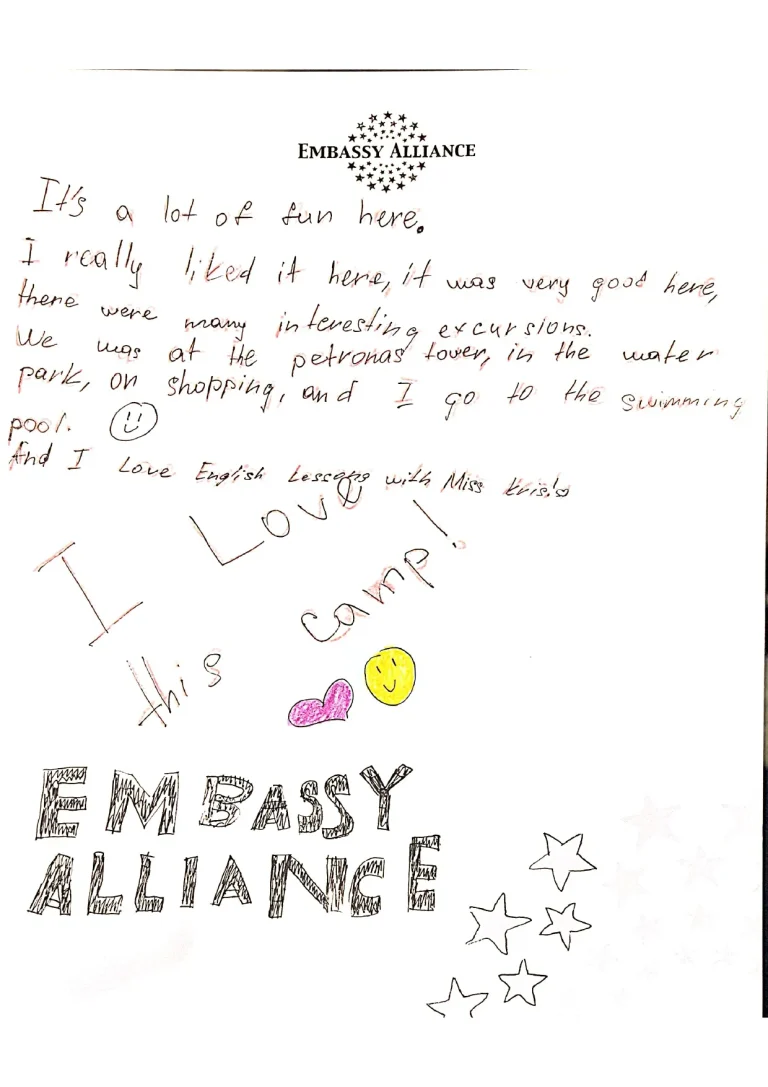 EMBASSY ALLIANCE
It's a lot of fun here.
I really liked it here, it was very good here,
there were many interesting excursions.
We was at the petronas tover, in the water
park, on shopping, and I go to the swimming
pool.
And I Love English Lessons with Miss
I Love
this camp!
EMBASSY
ALLIANCE